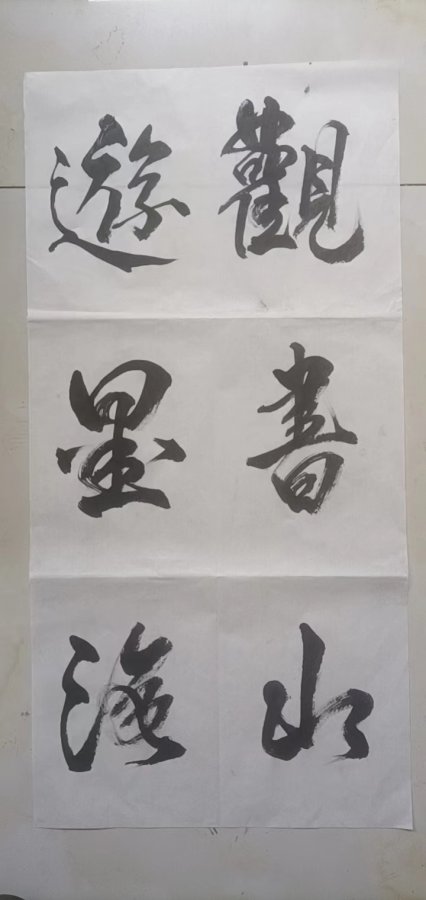 觀書山
遊墨海